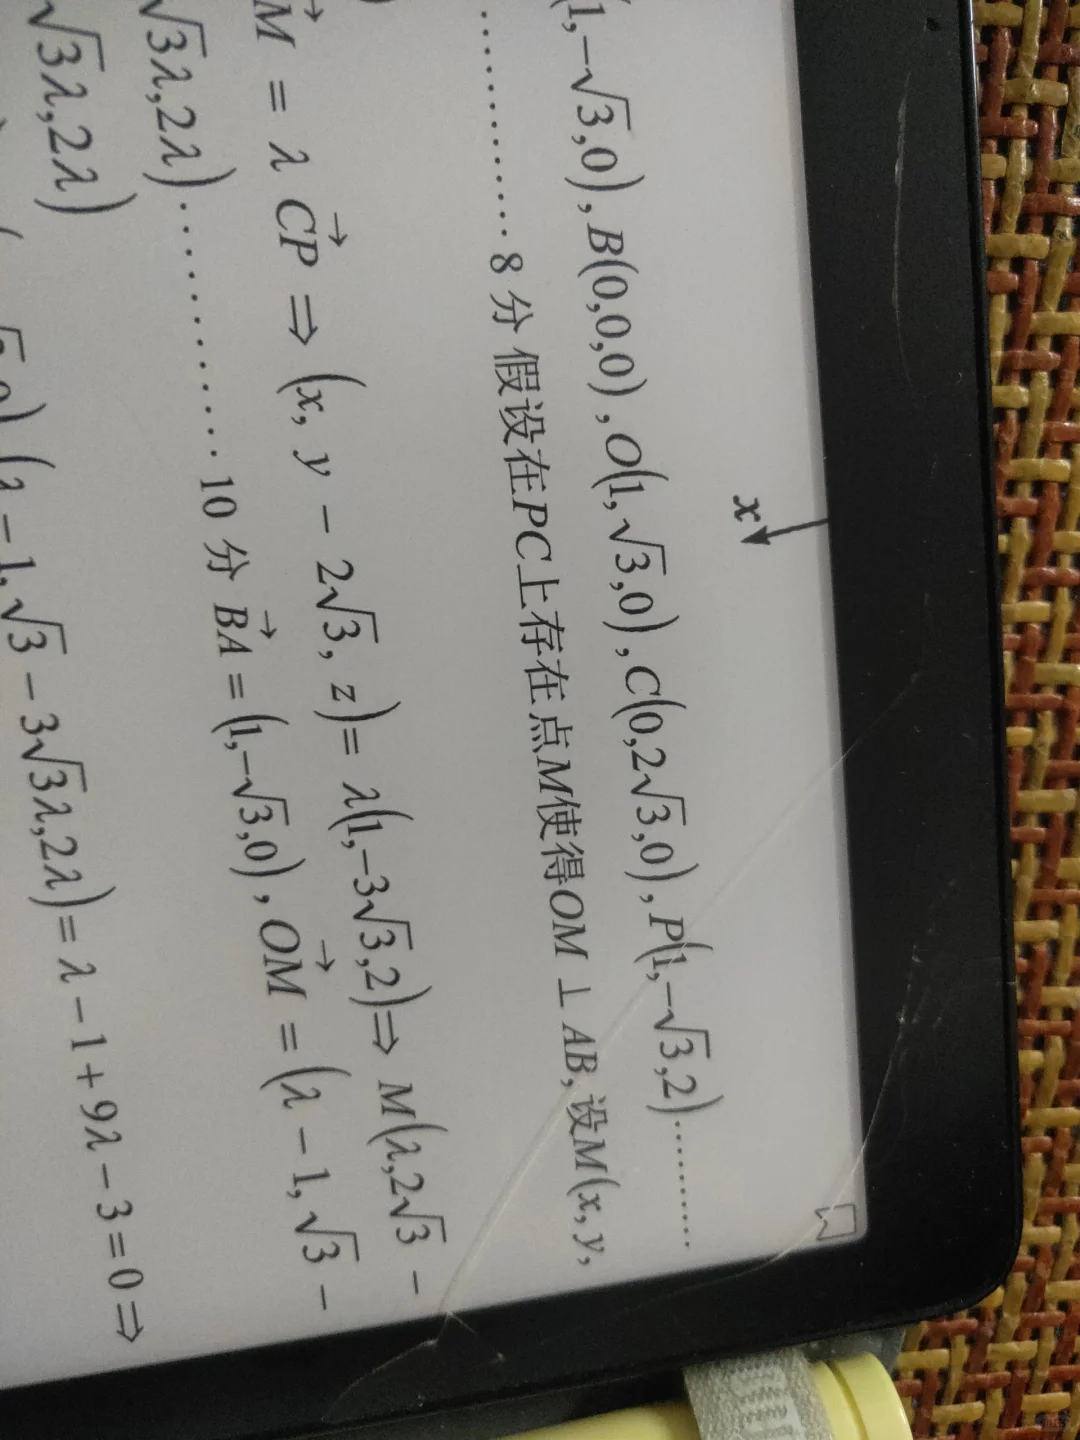 x
(1,−√3,0), B(0,0,0), O(1,√3,0), C(0,2√3,0), P(1,−√3,2)..........
............8 分 假设在PC上存在点M使得OM ⊥ AB, 设M(x, y,
)
M⃗ = λ CP⃗ ⇒ (x, y − 2√3, z)= λ(1,−3√3,2)⇒ M(λ,2√3 −
√3λ,2λ)............10 分 BA⃗ = (1,−√3,0), OM⃗ = (λ − 1, √3 −
√3λ,2λ)
(λ − 1, √3 − 3√3λ,2λ)= λ − 1 + 9λ − 3 = 0 ⇒